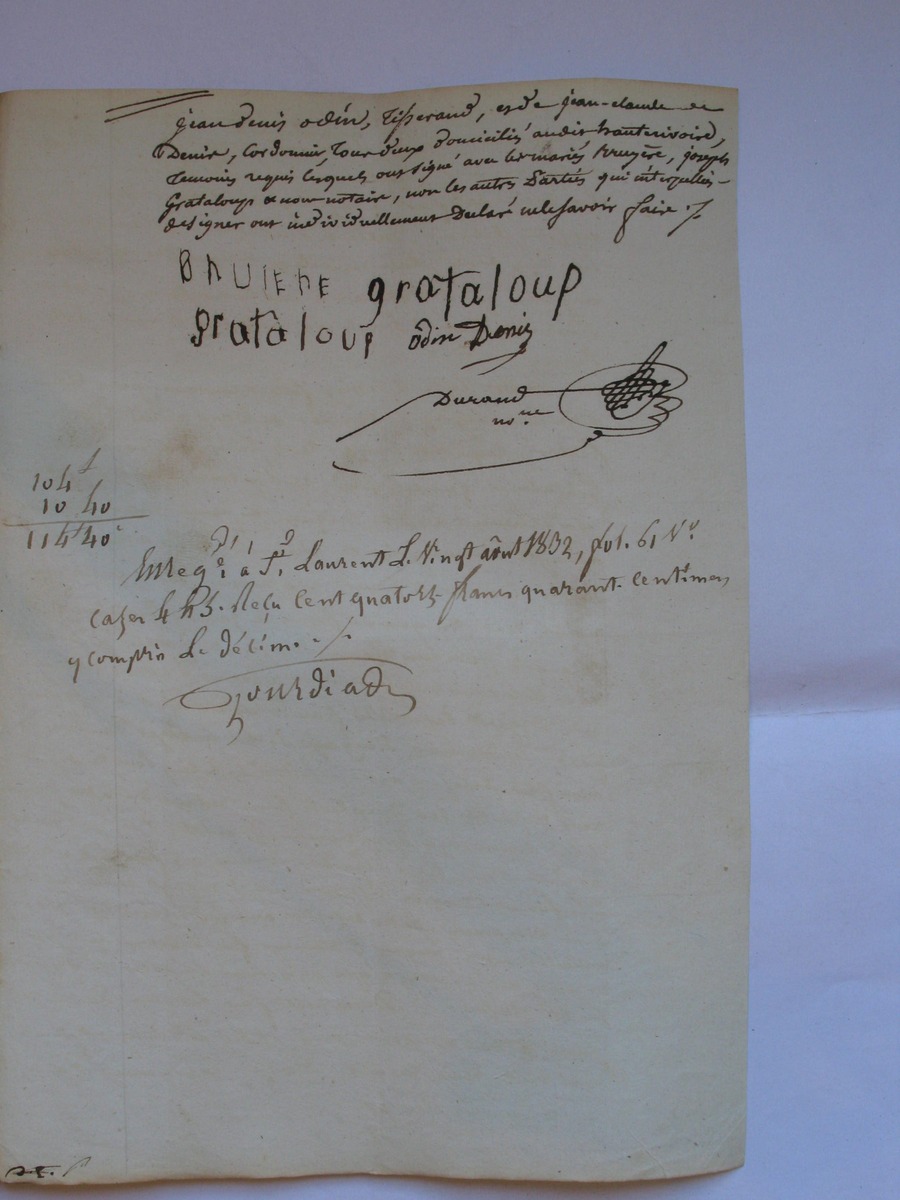 jean denis odin, Tisserand, et de jean-claude de
Denis, Cordonnier, Tous deux domiciliés audit hauterivoire,
Temoins requis lesquels ont signé avec les mariés Bruyère, joseph
Grataloup & nous notaire, non les autres Parties qui interpellés
de signer ont individuellement Declaré ne le savoir faire ./.
BRUIERE grataloup
grataloup odin Denis
Durand
nore
104f
10 40
114f 40c
Enregé à St. Laurent le vingt août 1832, fol. 61 Vo
cases 4 & 5. Reçu cent quatorze francs quarante centimes,
y compris le décime ./.